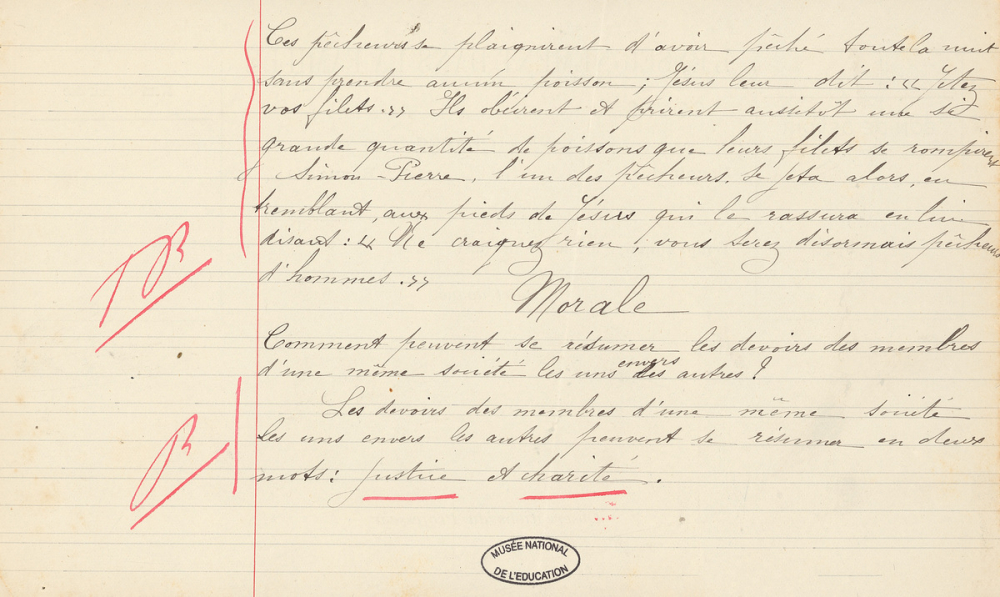 Ces pêcheurs se plaignirent d'avoir pêché toute la nuit
sans prendre aucun poisson ; Jésus leur dit : « Jetez
vos filets. » Ils obéirent et prirent aussitôt une si
grande quantité de poissons que leurs filets se rompirent
Simon-Pierre, l'un des pêcheurs, se jeta alors, en
tremblant, aux pieds de Jésus qui le rassura en lui
disant : « Ne craignez rien, vous serez désormais pêcheurs
d'hommes. »
TB
Morale
Comment peuvent se résumer les devoirs des membres
d'une même société les uns envers les autres ?
Les devoirs des membres d'une même société
les uns envers les autres peuvent se résumer en deux
mots : justice et charité.
B
MUSÉE NATIONAL
DE L'EDUCATION